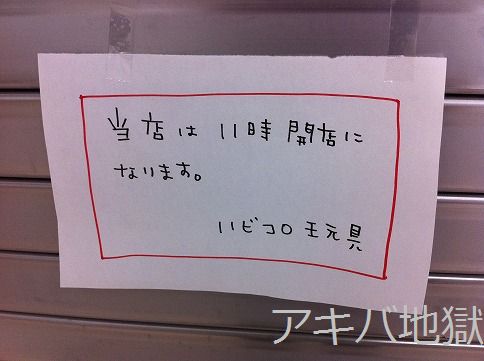 当店は 11時 開店に
なります。
ハビコロ玉玩具
アキバ地獄